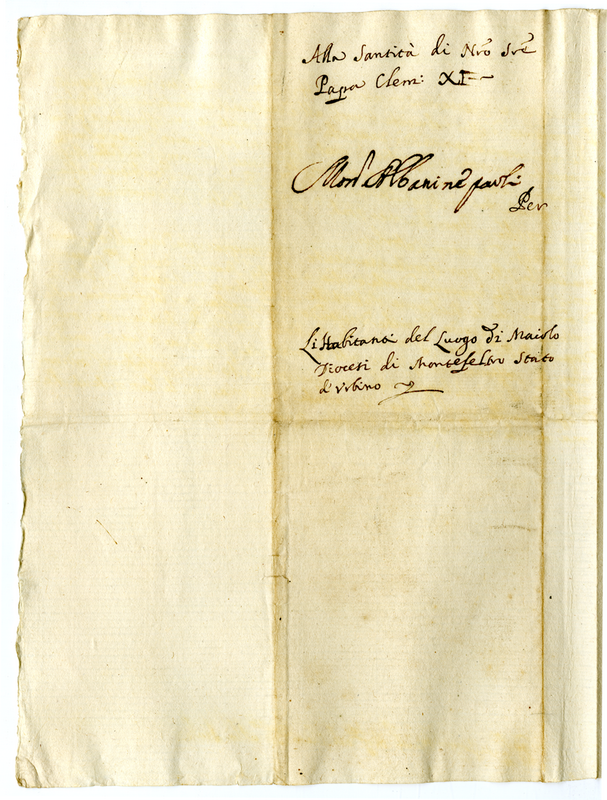 Alla Santità di Nrõ Srẽ
Papa Clem: XI
Mons.r Albani ne parli
Per
Li Habitanti del Luogo di Maiolo
Diocesi di Montefeltro Stato
d'Urbino